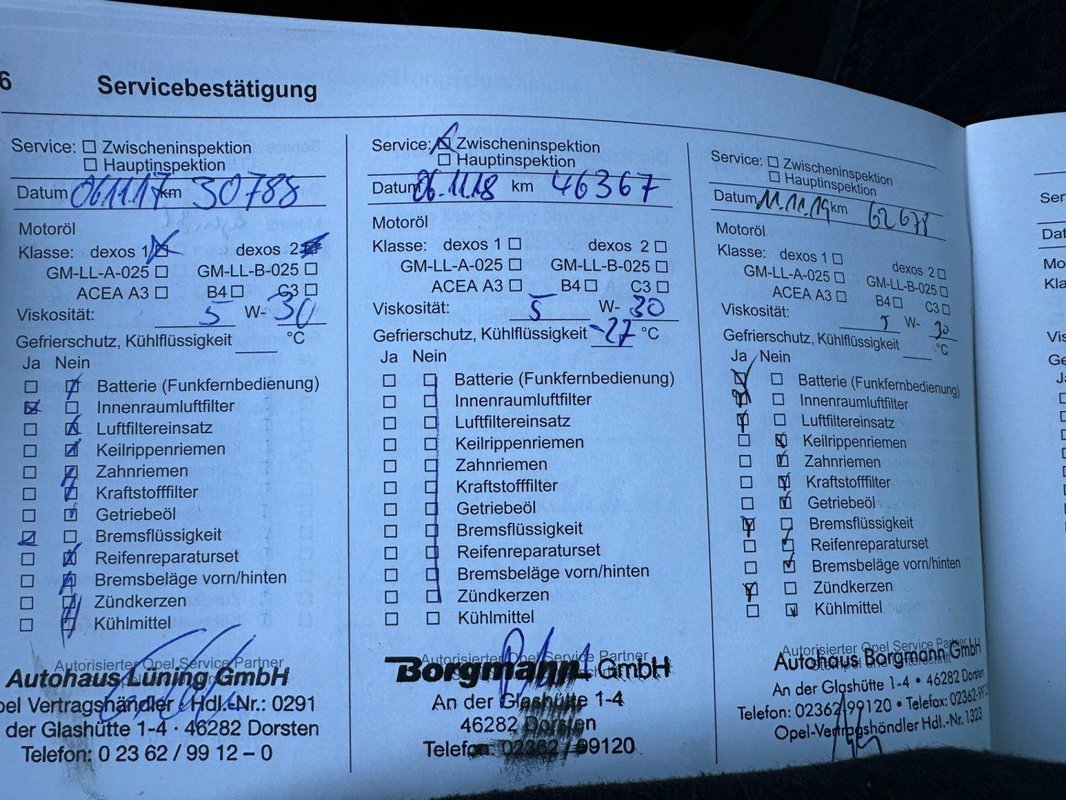 6 Servicebestätigung
Service: ☐ Zwischeninspektion
☐ Hauptinspektion
Datum 06.11.17 km 30788
Motoröl
Klasse: dexos 1 ☒ dexos 2
GM-LL-A-025 ☐ GM-LL-B-025 ☐
ACEA A3 ☐ B4 ☐ C3 ☐
Viskosität: 5 W- 30
Gefrierschutz, Kühlflüssigkeit ____ °C
Ja Nein
☐ ☒ Batterie (Funkfernbedienung)
☒ ☐ Innenraumluftfilter
☐ ☒ Luftfiltereinsatz
☐ ☒ Keilrippenriemen
☐ ☒ Zahnriemen
☐ ☒ Kraftstofffilter
☐ ☒ Getriebeöl
☒ ☐ Bremsflüssigkeit
☐ ☒ Reifenreparaturset
☐ ☒ Bremsbeläge vorn/hinten
☐ ☒ Zündkerzen
☐ ☒ Kühlmittel
Autorisierter Opel Service Partner
Autohaus Lüning GmbH
pel Vertragshändler · Hdl.-Nr.: 0291
der Glashütte 1-4 · 46282 Dorsten
Telefon: 0 23 62 / 99 12 – 0
Service: ☒ Zwischeninspektion
☐ Hauptinspektion
Datum 06.11.18 km 46367
Motoröl
Klasse: dexos 1 ☐ dexos 2 ☐
GM-LL-A-025 ☐ GM-LL-B-025 ☐
ACEA A3 ☐ B4 ☐ C3 ☐
Viskosität: 5 W- 30
Gefrierschutz, Kühlflüssigkeit -27 °C
Ja Nein
☐ ☒ Batterie (Funkfernbedienung)
☐ ☒ Innenraumluftfilter
☐ ☒ Luftfiltereinsatz
☐ ☒ Keilrippenriemen
☐ ☒ Zahnriemen
☐ ☒ Kraftstofffilter
☐ ☒ Getriebeöl
☐ ☒ Bremsflüssigkeit
☐ ☒ Reifenreparaturset
☐ ☒ Bremsbeläge vorn/hinten
☐ ☒ Zündkerzen
☐ ☐ Kühlmittel
Autorisierter Opel Service Partner
Borgmann GmbH
An der Glashütte 1-4
46282 Dorsten
Telefon 02362 / 99120
Service: ☐ Zwischeninspektion
☐ Hauptinspektion
Datum 11.11.19 km 62678
Motoröl
Klasse: dexos 1 ☐ dexos 2 ☐
GM-LL-A-025 ☐ GM-LL-B-025 ☐
ACEA A3 ☐ B4 ☐ C3 ☐
Viskosität: 5 W- 30
Gefrierschutz, Kühlflüssigkeit ____ °C
Ja Nein
☒ ☐ Batterie (Funkfernbedienung)
☒ ☐ Innenraumluftfilter
☒ ☐ Luftfiltereinsatz
☐ ☒ Keilrippenriemen
☐ ☒ Zahnriemen
☐ ☒ Kraftstofffilter
☐ ☒ Getriebeöl
☒ ☐ Bremsflüssigkeit
☐ ☒ Reifenreparaturset
☐ ☒ Bremsbeläge vorn/hinten
☒ ☐ Zündkerzen
☐ ☒ Kühlmittel
Autorisierter Opel Service Partner
Autohaus Borgmann GmbH
An der Glashütte 1-4 • 46282 Dorsten
Telefon: 02362/99120 • Telefax: 02362-99
Opel-Vertragshändler Hdl.-Nr. 1323